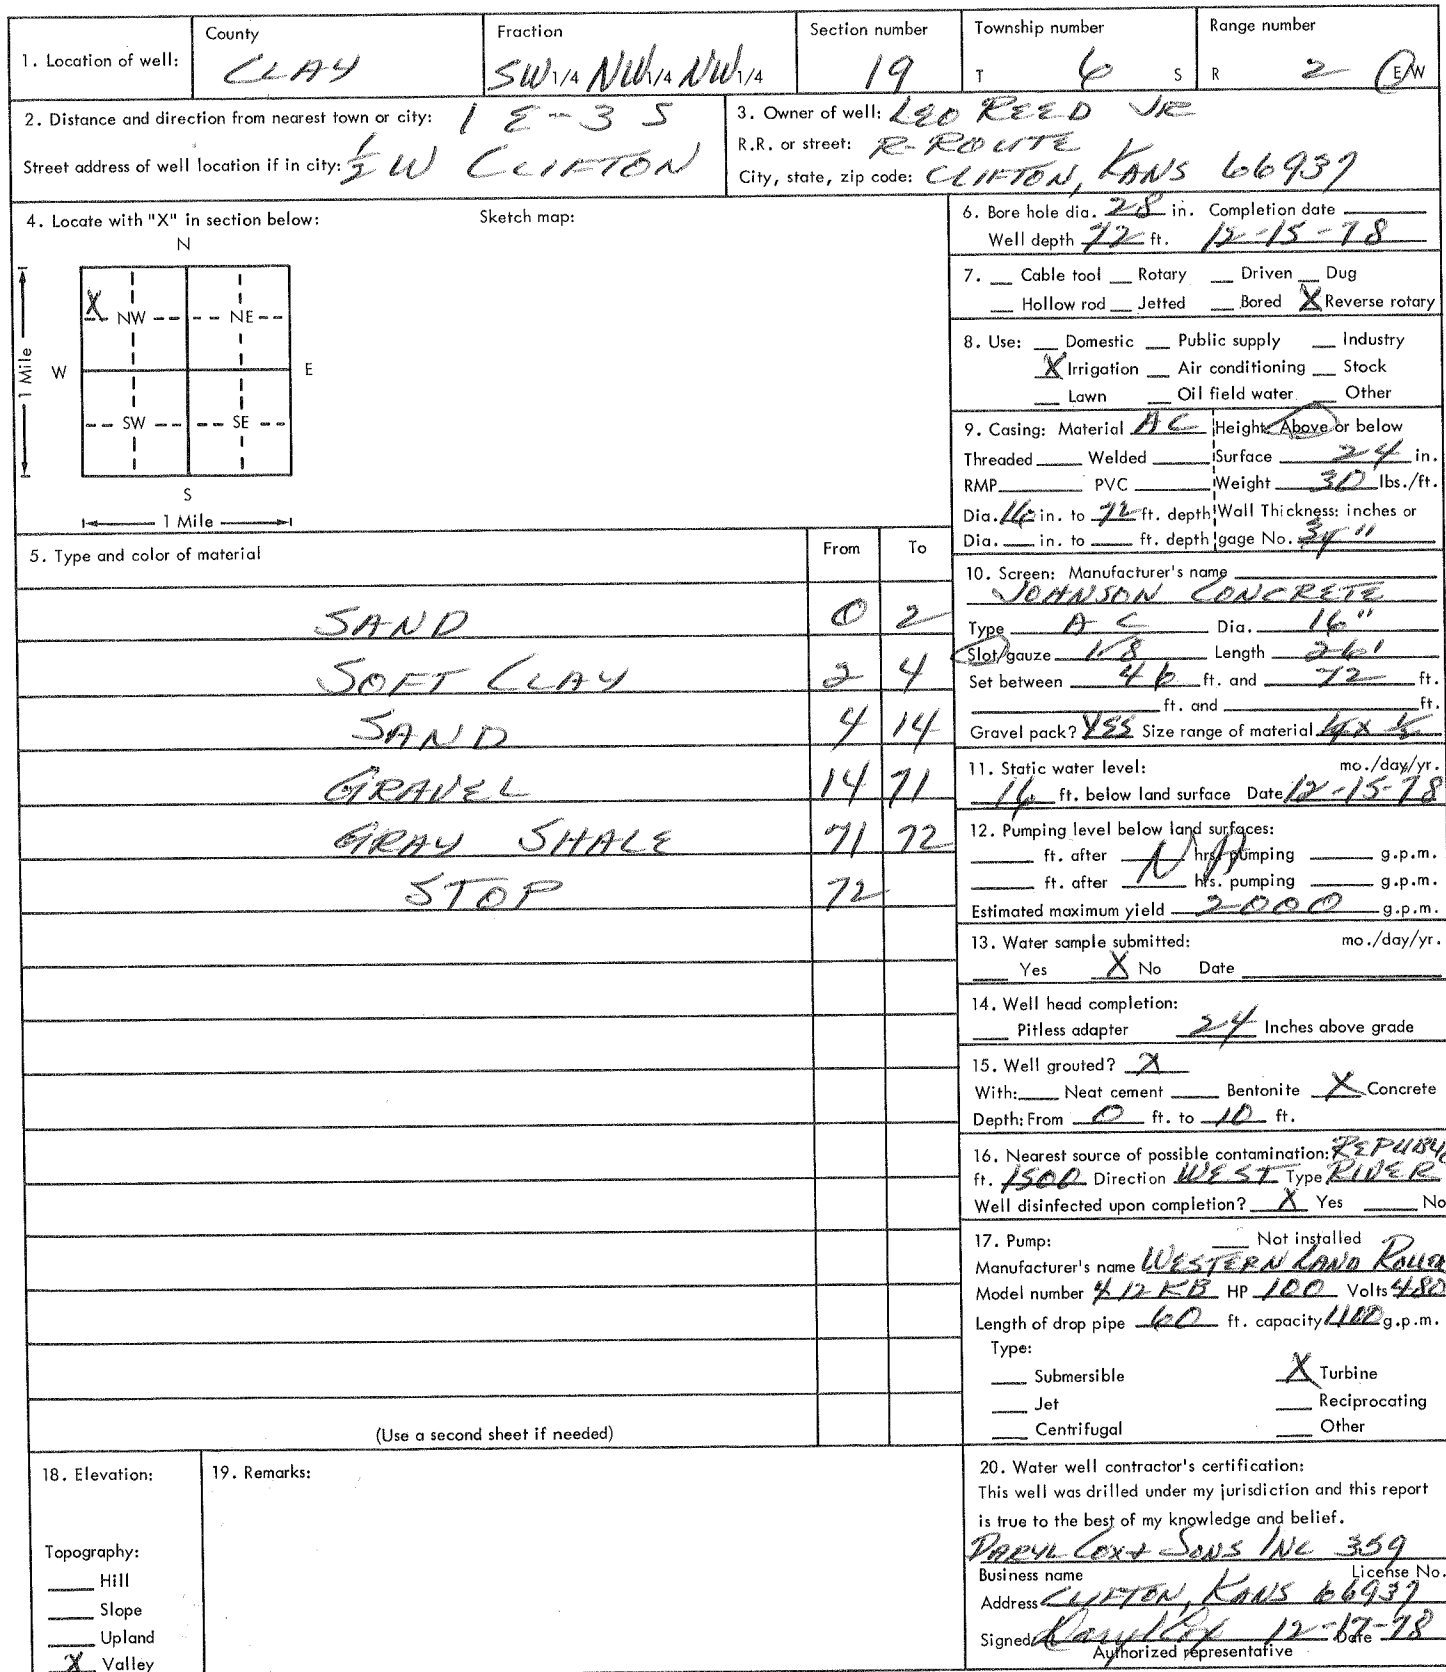 1. Location of well: County CLAY Fraction SW 1/4 NW 1/4 NW 1/4 Section number 19 Township number T 6 S Range number R 2 E/W
2. Distance and direction from nearest town or city: 1 E-3 S
Street address of well location if in city: 1/2 W CLIFTON
3. Owner of well: LEO REED JR
R.R. or street: R-ROUTE
City, state, zip code: CLIFTON, KANS 66937
4. Locate with "X" in section below: Sketch map:
N
X
NW NE
W E
1 Mile
SW SE
S
1 Mile
5. Type and color of material From To
SAND 0 2
SOFT CLAY 2 4
SAND 4 14
GRAVEL 14 71
GRAY SHALE 71 72
STOP 72
(Use a second sheet if needed)
6. Bore hole dia. 28 in. Completion date
Well depth 72 ft. 12-15-78
7. Cable tool Rotary Driven Dug
Hollow rod Jetted Bored X Reverse rotary
8. Use: Domestic Public supply Industry
X Irrigation Air conditioning Stock
Lawn Oil field water Other
9. Casing: Material AC Height: Above or below
Threaded Welded Surface 24 in.
RMP PVC Weight 30 lbs./ft.
Dia. 16 in. to 72 ft. depth Wall Thickness: inches or
Dia. in. to ft. depth gage No.
10. Screen: Manufacturer's name
JOHNSON CONCRETE
Type A C Dia. 16"
Slot/gauze Length 26'
Set between 46 ft. and 72 ft.
ft. and ft.
Gravel pack? YES Size range of material
11. Static water level: mo./day/yr.
16 ft. below land surface Date 12-15-78
12. Pumping level below land surfaces:
ft. after hrs. pumping g.p.m.
ft. after hrs. pumping g.p.m.
Estimated maximum yield 2000 g.p.m.
13. Water sample submitted: mo./day/yr.
Yes X No Date
14. Well head completion:
Pitless adapter 24 Inches above grade
15. Well grouted? X
With: Neat cement Bentonite X Concrete
Depth: From 0 ft. to 10 ft.
16. Nearest source of possible contamination:
ft. 1500 Direction WEST Type RIVER
Well disinfected upon completion? X Yes No
17. Pump: Not installed
Manufacturer's name WESTERN LAND ROLLER
Model number 412 KB HP 100 Volts 480
Length of drop pipe 60 ft. capacity 1100 g.p.m.
Type:
Submersible X Turbine
Jet Reciprocating
Centrifugal Other
18. Elevation:
Topography:
Hill
Slope
Upland
X Valley
19. Remarks:
20. Water well contractor's certification:
This well was drilled under my jurisdiction and this report
is true to the best of my knowledge and belief.
DARYL COX + SONS INC 359
Business name License No.
Address CLIFTON, KANS 66937
Signed Daryl Cox 12-17-78 Date
Authorized representative